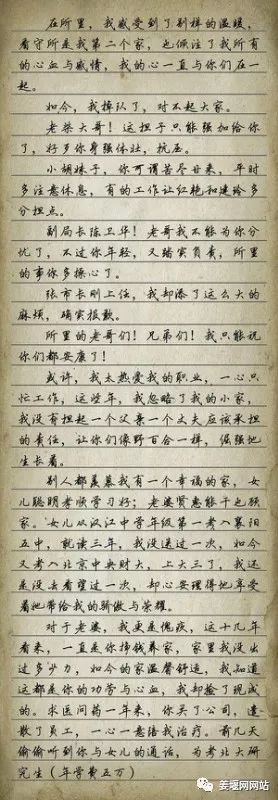 在所里，我感受到了别样的温暖，
看守所是我第二个家，也倾注了我所有
的心血与感情，我的心一直与你们在一
起。
如今，我掉队了，对不起大家。
老柴大哥！这担子只能强加给你
了，好歹你身强体壮，抗压。
小胡妹子，你可谓苦尽甘来，平时
多注意休息，有的工作让红艳和建玲多
分担点。
副局长陈卫华！老哥我不能为你分
忧了，不过你年轻，又踏实负责，所里
的事你多操心了。
张市长刚上任，我却添了这么大的
麻烦，确实抱歉。
所里的老哥们！兄弟们！我只能祝
你们都安康了！
或许，我太热爱我的职业，一心只
忙工作，这些年，我忽略了我的小家，
我没有担起一个父亲一个丈夫应该承担
的责任，让你们像野百合一样，倔强地
生长着。
别人都羡慕我有一个幸福的家，女
儿聪明孝顺学习好；老婆贤惠能干也顾
家。女儿从汉江中学年级第一考入襄阳
五中，就读三年，我没送过一次，如今
又考入北京中央财大，上大三了，我还
是没去看望过一次，却心安理得地享受
着她带给我的骄傲与荣耀。
对于老婆，我更是愧疚，这十几年
看来，一直是你挣钱养家，家里我没出
过多少力，如今的家温馨舒适，我知道
这都是你的功劳与心血，我却捡了现成
的。求医问药一年来，你关了公司，遣
散了员工，一心一意陪我治疗。前几天
偷偷听到你与女儿的通话，为考北大研
究生（年学费五万）
姜堰网网站